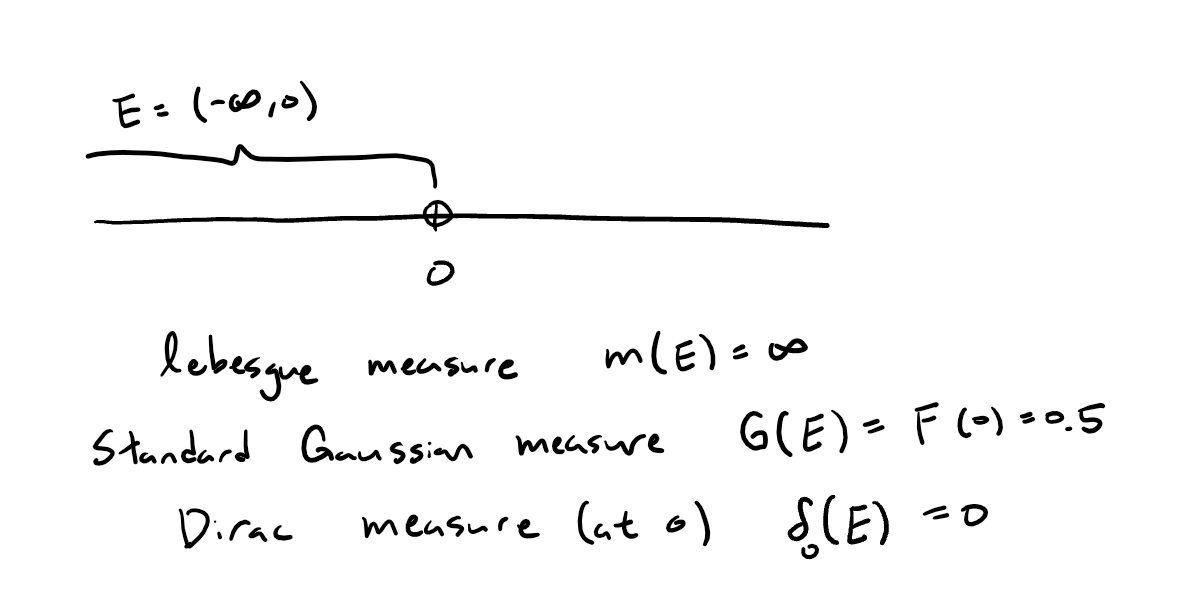 E = (-∞, 0)
0
lebesgue measure m(E) = ∞
Standard Gaussian measure G(E) = F(0) = 0.5
Dirac measure (at 0) δ₀(E) = 0